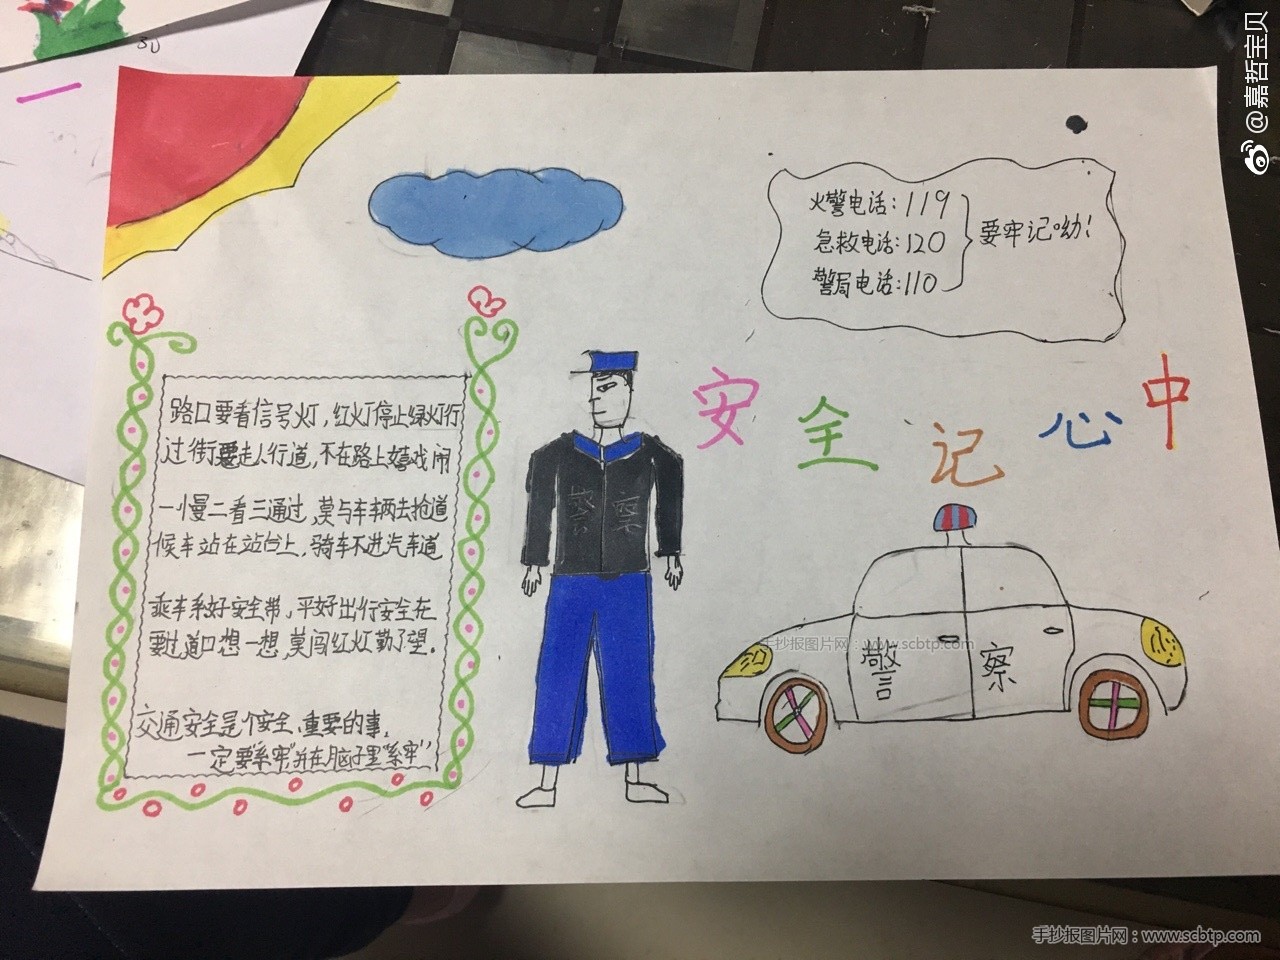 @嘉哲宝贝
30
火警电话:119
急救电话:120
警局电话:110
要牢记呦!
安全记心中
路口要看信号灯,红灯停止绿灯行
过街要走人行道,不在路上嬉戏闹
一慢二看三通过,莫与车辆去抢道
候车站在站台上,骑车不进汽车道
乘车系好安全带,平好出行安全在
要过道口想一想,莫闯红灯勤了望。
交通安全是个安全、重要的事,
一定要"系牢"并在脑子里"系牢"
警察
警察
手抄报图片网:www.scbtp.com
手抄报图片网:www.scbtp.com